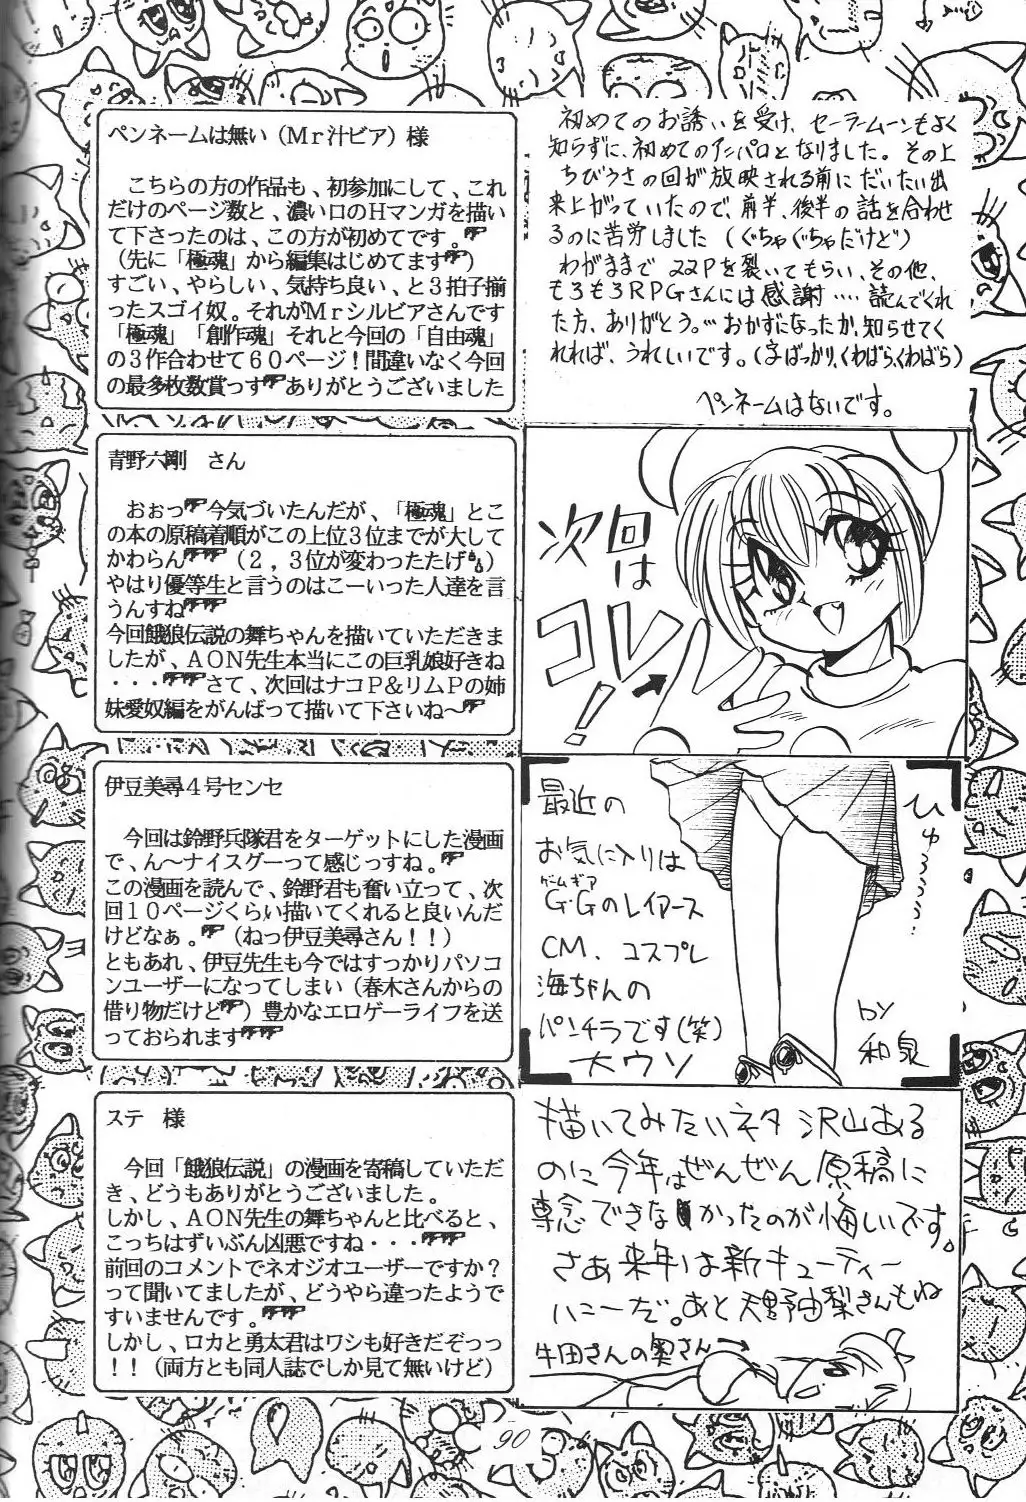 ペンネームは無い（Ｍｒ汁ビア）様
こちらの方の作品も、初参加にして、これ
だけのページ数と、濃い口のＨマンガを描い
て下さったのは、この方が初めてです。
（先に「極魂」から編集はじめてます）
すごい、やらしい、気持ち良い、と３拍子揃
ったスゴイ奴。それがＭｒシルビアさんです
「極魂」「創作魂」それと今回の「自由魂」
の３作合わせて６０ページ！間違いなく今回
の最多枚数賞っす ありがとうございました
初めてのお誘いを受け、セーラームーンもよく
知らずに、初めてのアンパロとなりました。その上
ちびうさの回が放映される前にだいたい出
来上がっていたので、前半、後半の話を合わせ
るのに苦労しました（ぐちゃぐちゃだけど）
わがままで22Pを裂いてもらい、その他、
もろもろRPGさんには感謝‥‥読んでくれ
た方、ありがとう。…おかずになったか、知らせてく
れれば、うれしいです。（字ばっかり、くわばら、くわばら）
ペンネームはないです。
青野六剛　さん
おぉっ 今気づいたんだが、「極魂」とこ
の本の原稿着順がこの上位３位までが大して
かわらん （２，３位が変わったたけ）
やはり優等生と言うのはこーいった人達を言
うんすね
今回餓狼伝説の舞ちゃんを描いていただきま
したが、ＡＯＮ先生本当にこの巨乳娘好きね
・・・ さて、次回はナコＰ＆リムＰの姉
妹愛奴編をがんばって描いて下さいね〜
次回は
コレ！
伊豆美尋４号センセ
今回は鈴野兵隊君をターゲットにした漫画
で、ん〜ナイスグーって感じっすね。
この漫画を読んで、鈴野君も奮い立って、次
回１０ページくらい描いてくれると良いんだ
けどなぁ。（ねっ伊豆美尋さん！！）
ともあれ、伊豆先生も今ではすっかりパソコ
ンユーザーになってしまい（春木さんからの
借り物だけど）豊かなエロゲーライフを送
っておられます
最近の
お気に入りは
ゲームギア
G・Gのレイアース
CM、コスプレ
海ちゃんの
パンチラです（笑）
大ウソ
ひゅううううう…
by
和泉
ステ　様
今回「餓狼伝説」の漫画を寄稿していただ
き、どうもありがとうございました。
しかし、ＡＯＮ先生の舞ちゃんと比べると、
こっちはずいぶん凶悪ですね・・・
前回のコメントでネオジオユーザーですか？
って聞いてましたが、どうやら違ったようで
すいませんです。
しかし、ロカと勇太君はワシも好きだぞっっ
！！（両方とも同人誌でしか見て無いけど）
描いてみたいネタ 沢山ある
のに今年はぜんぜん原稿に
専念できなかったのが悔しいです。
さあ来年は新キューティー
ハニーだ。あと天野由梨さんもね
牛田さんの奥さん→
90